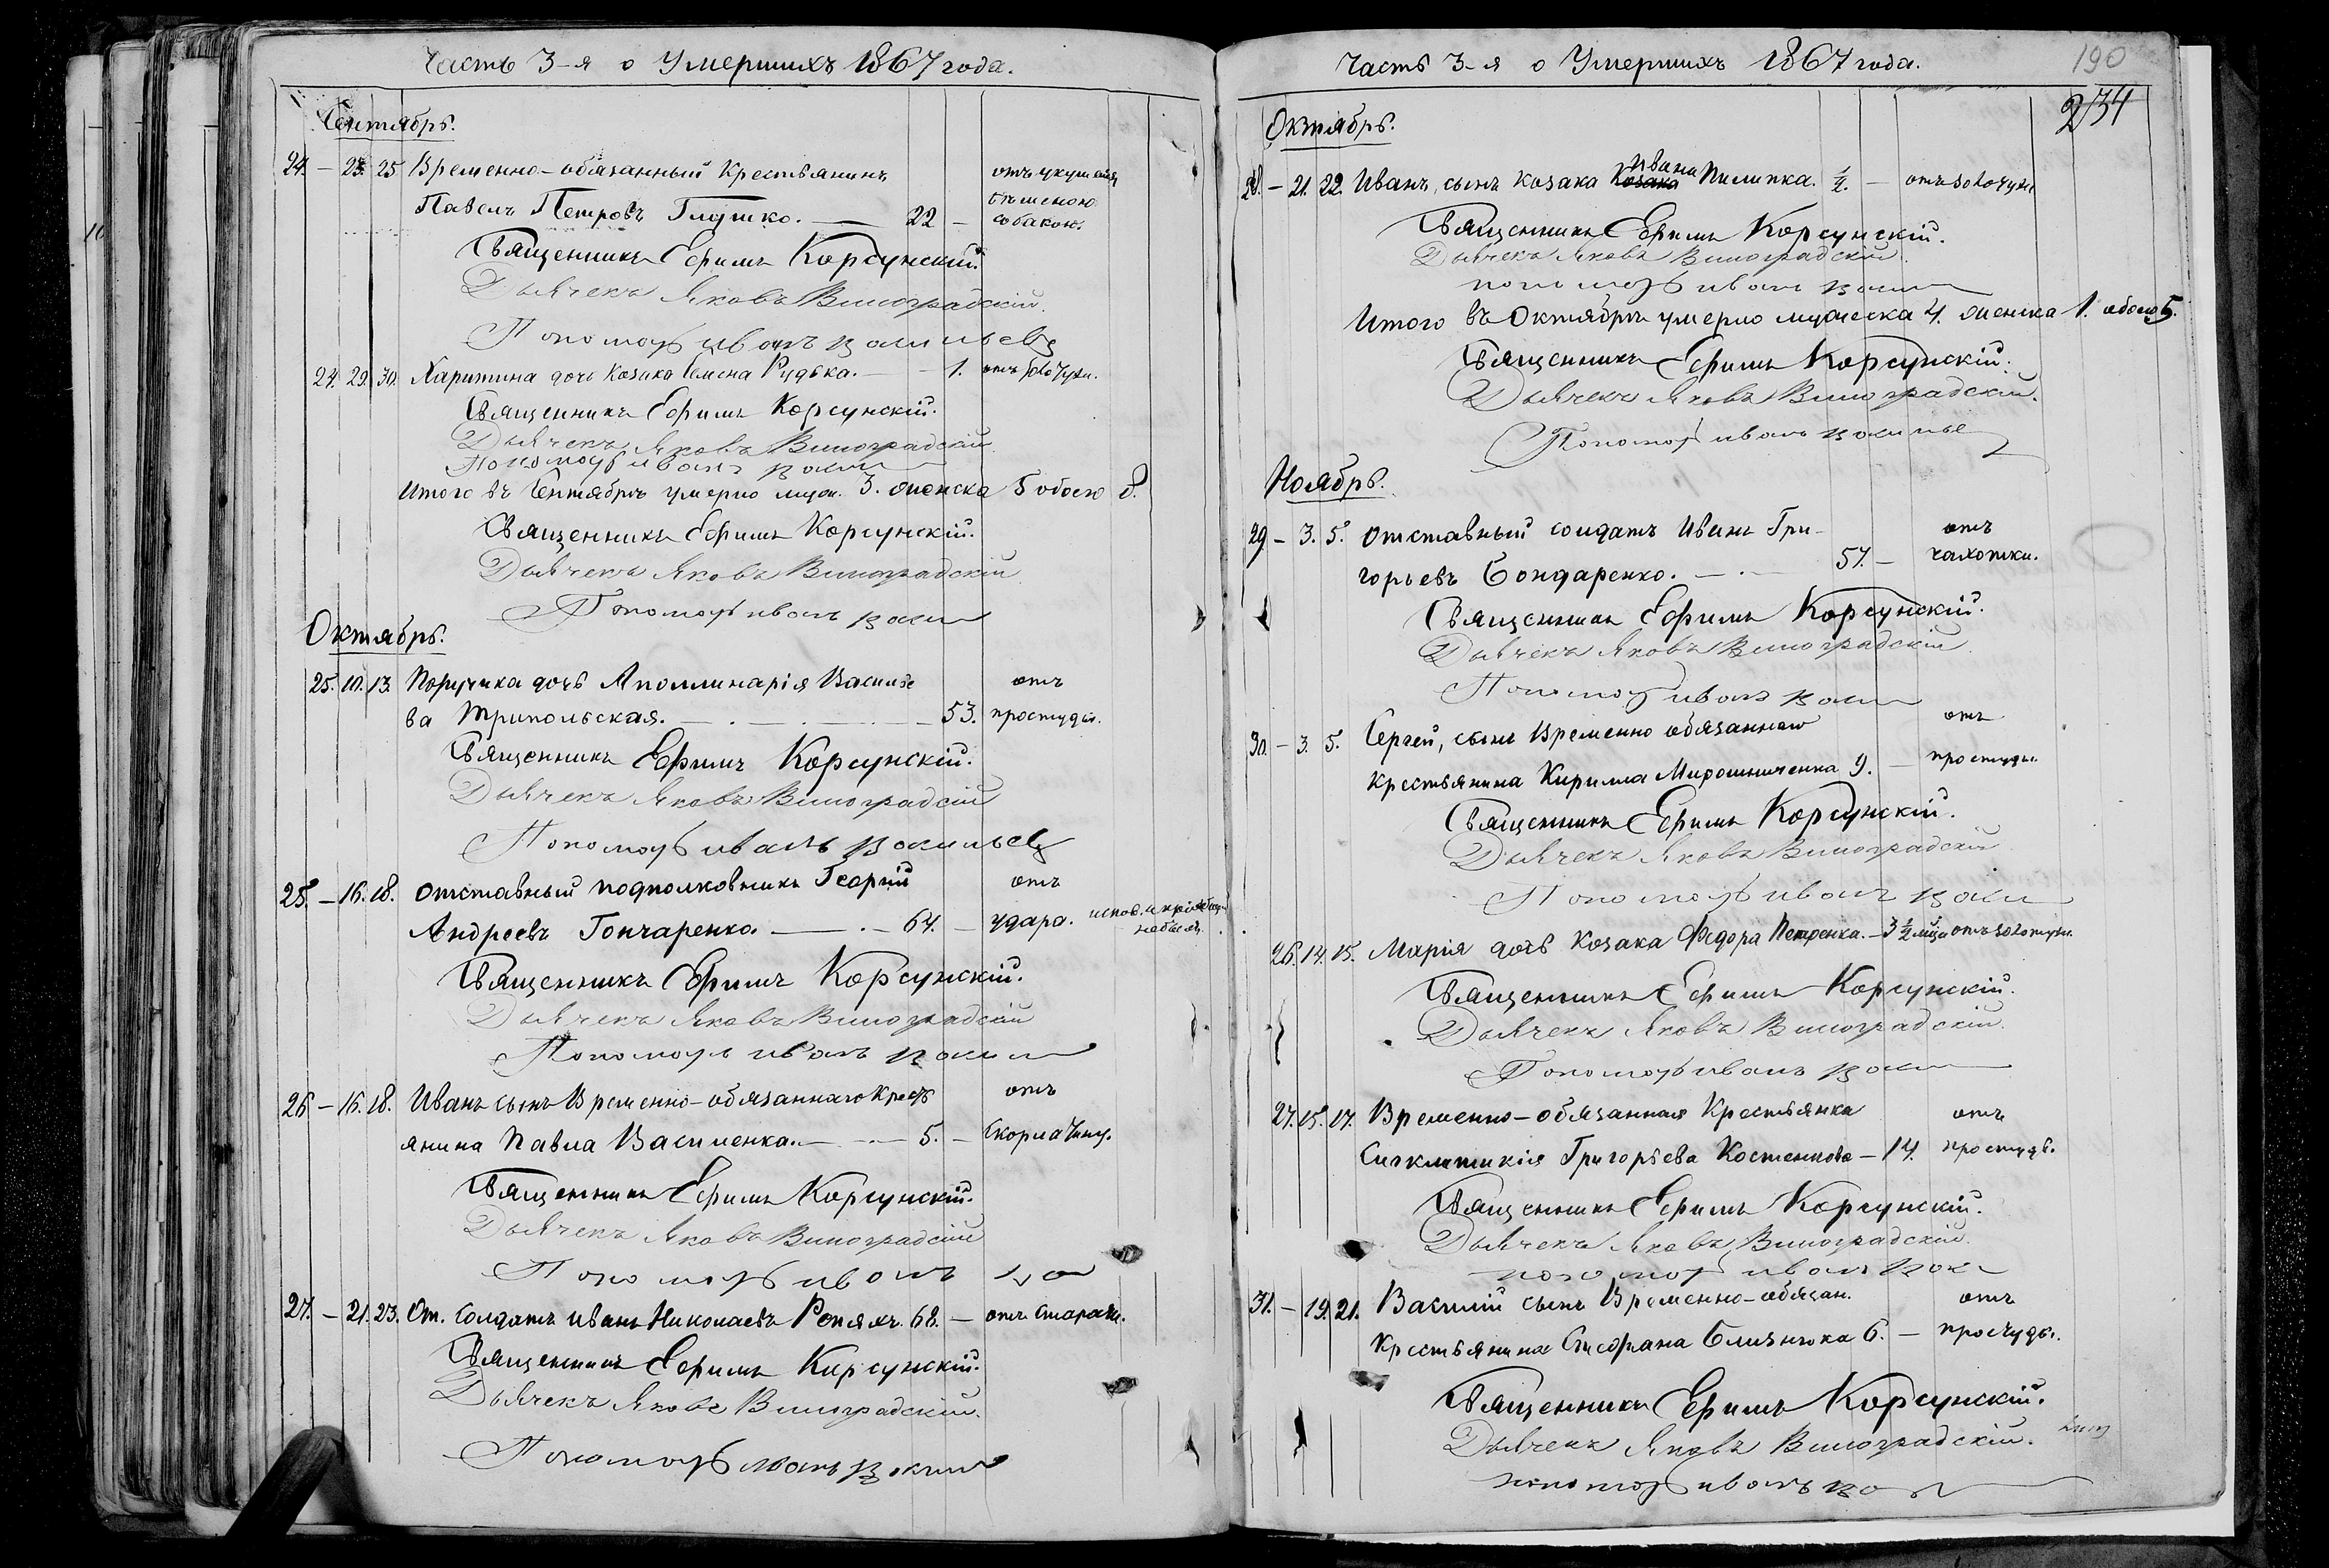 Часть 3-я о Умершихъ 1867 года.
Сентябрь.
24. – 23. 25 Временно-обязанный Крестьянинъ отъ укушенія
Павелъ Петровъ Глушко. — 22 – бѣшеною
собакою.
Священникъ Ефимъ Корсунскій.
Дьячекъ Яковъ Виноградскій.
Пономарь Иванъ Васильевъ
24. 29. 30. Харитина дочь Козака Семена Рудька. — 1. отъ золотухи.
Священникъ Ефимъ Корсунскій.
Дьячекъ Яковъ Виноградскій
Пономарь Иванъ
Итого въ Сентябрѣ умерло муж. 3. женска 5 обоего 8.
Священникъ Ефимъ Корсунскій.
Дьячекъ Яковъ Виноградскій
Пономарь Иванъ
Октябрь.
25. 10. 13. Поручика дочь Аполлинарія Василье отъ
ва Трипольская. — 53. простуды.
Священникъ Ефимъ Корсунскій.
Дьячекъ Яковъ Виноградскій
Пономарь Иванъ Васильевъ
25. – 16. 18. Отставный подполковникъ Георгій отъ
Андреевъ Гончаренко — 64. – удара.
Священникъ Ефимъ Корсунскій.
Дьячекъ Яковъ Виноградскій
Пономарь Иванъ
26 – 16. 18. Иванъ сынъ Временно-обязаннаго Кресть отъ
янина Павла Василенка. — 5. – Скорлатины.
Священникъ Ефимъ Корсунскій.
Дьячекъ Яковъ Виноградскій
Пономарь Иванъ
27. – 21. 23. От. Солдатъ Иванъ Николаевъ Репяхъ. 68. – отъ старости.
Священникъ Ефимъ Корсунскій.
Дьячекъ Яковъ Виноградскій.
Пономарь Иванъ
Часть 3-я о Умершихъ 1867 года.
190
234
Октябрь.
28. – 21. 22. Иванъ, сынъ Козака Ивана Пилипка. ½. – отъ золотухи
Священникъ Ефимъ Корсунскій.
Дьячекъ Яковъ Виноградскій.
пономарь Иванъ
Итого въ Октябрѣ умерло мужеска 4. женска 1. обоего 5.
Священникъ Ефимъ Корсунскій.
Дьячекъ Яковъ Виноградскій.
Пономарь Иванъ
Ноябрь.
29 – 3. 5. Отставный солдатъ Иванъ Гри- отъ
горьевъ Бондаренко. — 57. – чахотки.
Священникъ Ефимъ Корсунскій.
Дьячекъ Яковъ Виноградскій
Пономарь Иванъ
30. – 3. 5. Сергей, сынъ Временно обязаннаго отъ
крестьянина Кирилла Мирошниченка 9. – простуды.
Священникъ Ефимъ Корсунскій.
Дьячекъ Яковъ Виноградскій
Пономарь Иванъ
26. 14. 15. Марія дочь Козака Федора Петренка. – 3½ отъ золотухи.
Священникъ Ефимъ Корсунскій.
Дьячекъ Яковъ Виноградскій.
Пономарь Иванъ
27. 15. 17. Временно-обязанная Крестьянка отъ
Сигклитикія Григорьева – 14. простуды.
Священникъ Ефимъ Корсунскій.
Дьячекъ Яковъ Виноградскій.
пономарь Иванъ
31. – 19. 21. Василій сынъ Временно-обязан. отъ
крестьянина Стефана Близнюка 6. – простуды.
Священникъ Ефимъ Корсунскій.
Дьячекъ Яковъ Виноградскій.
пономарь Иванъ